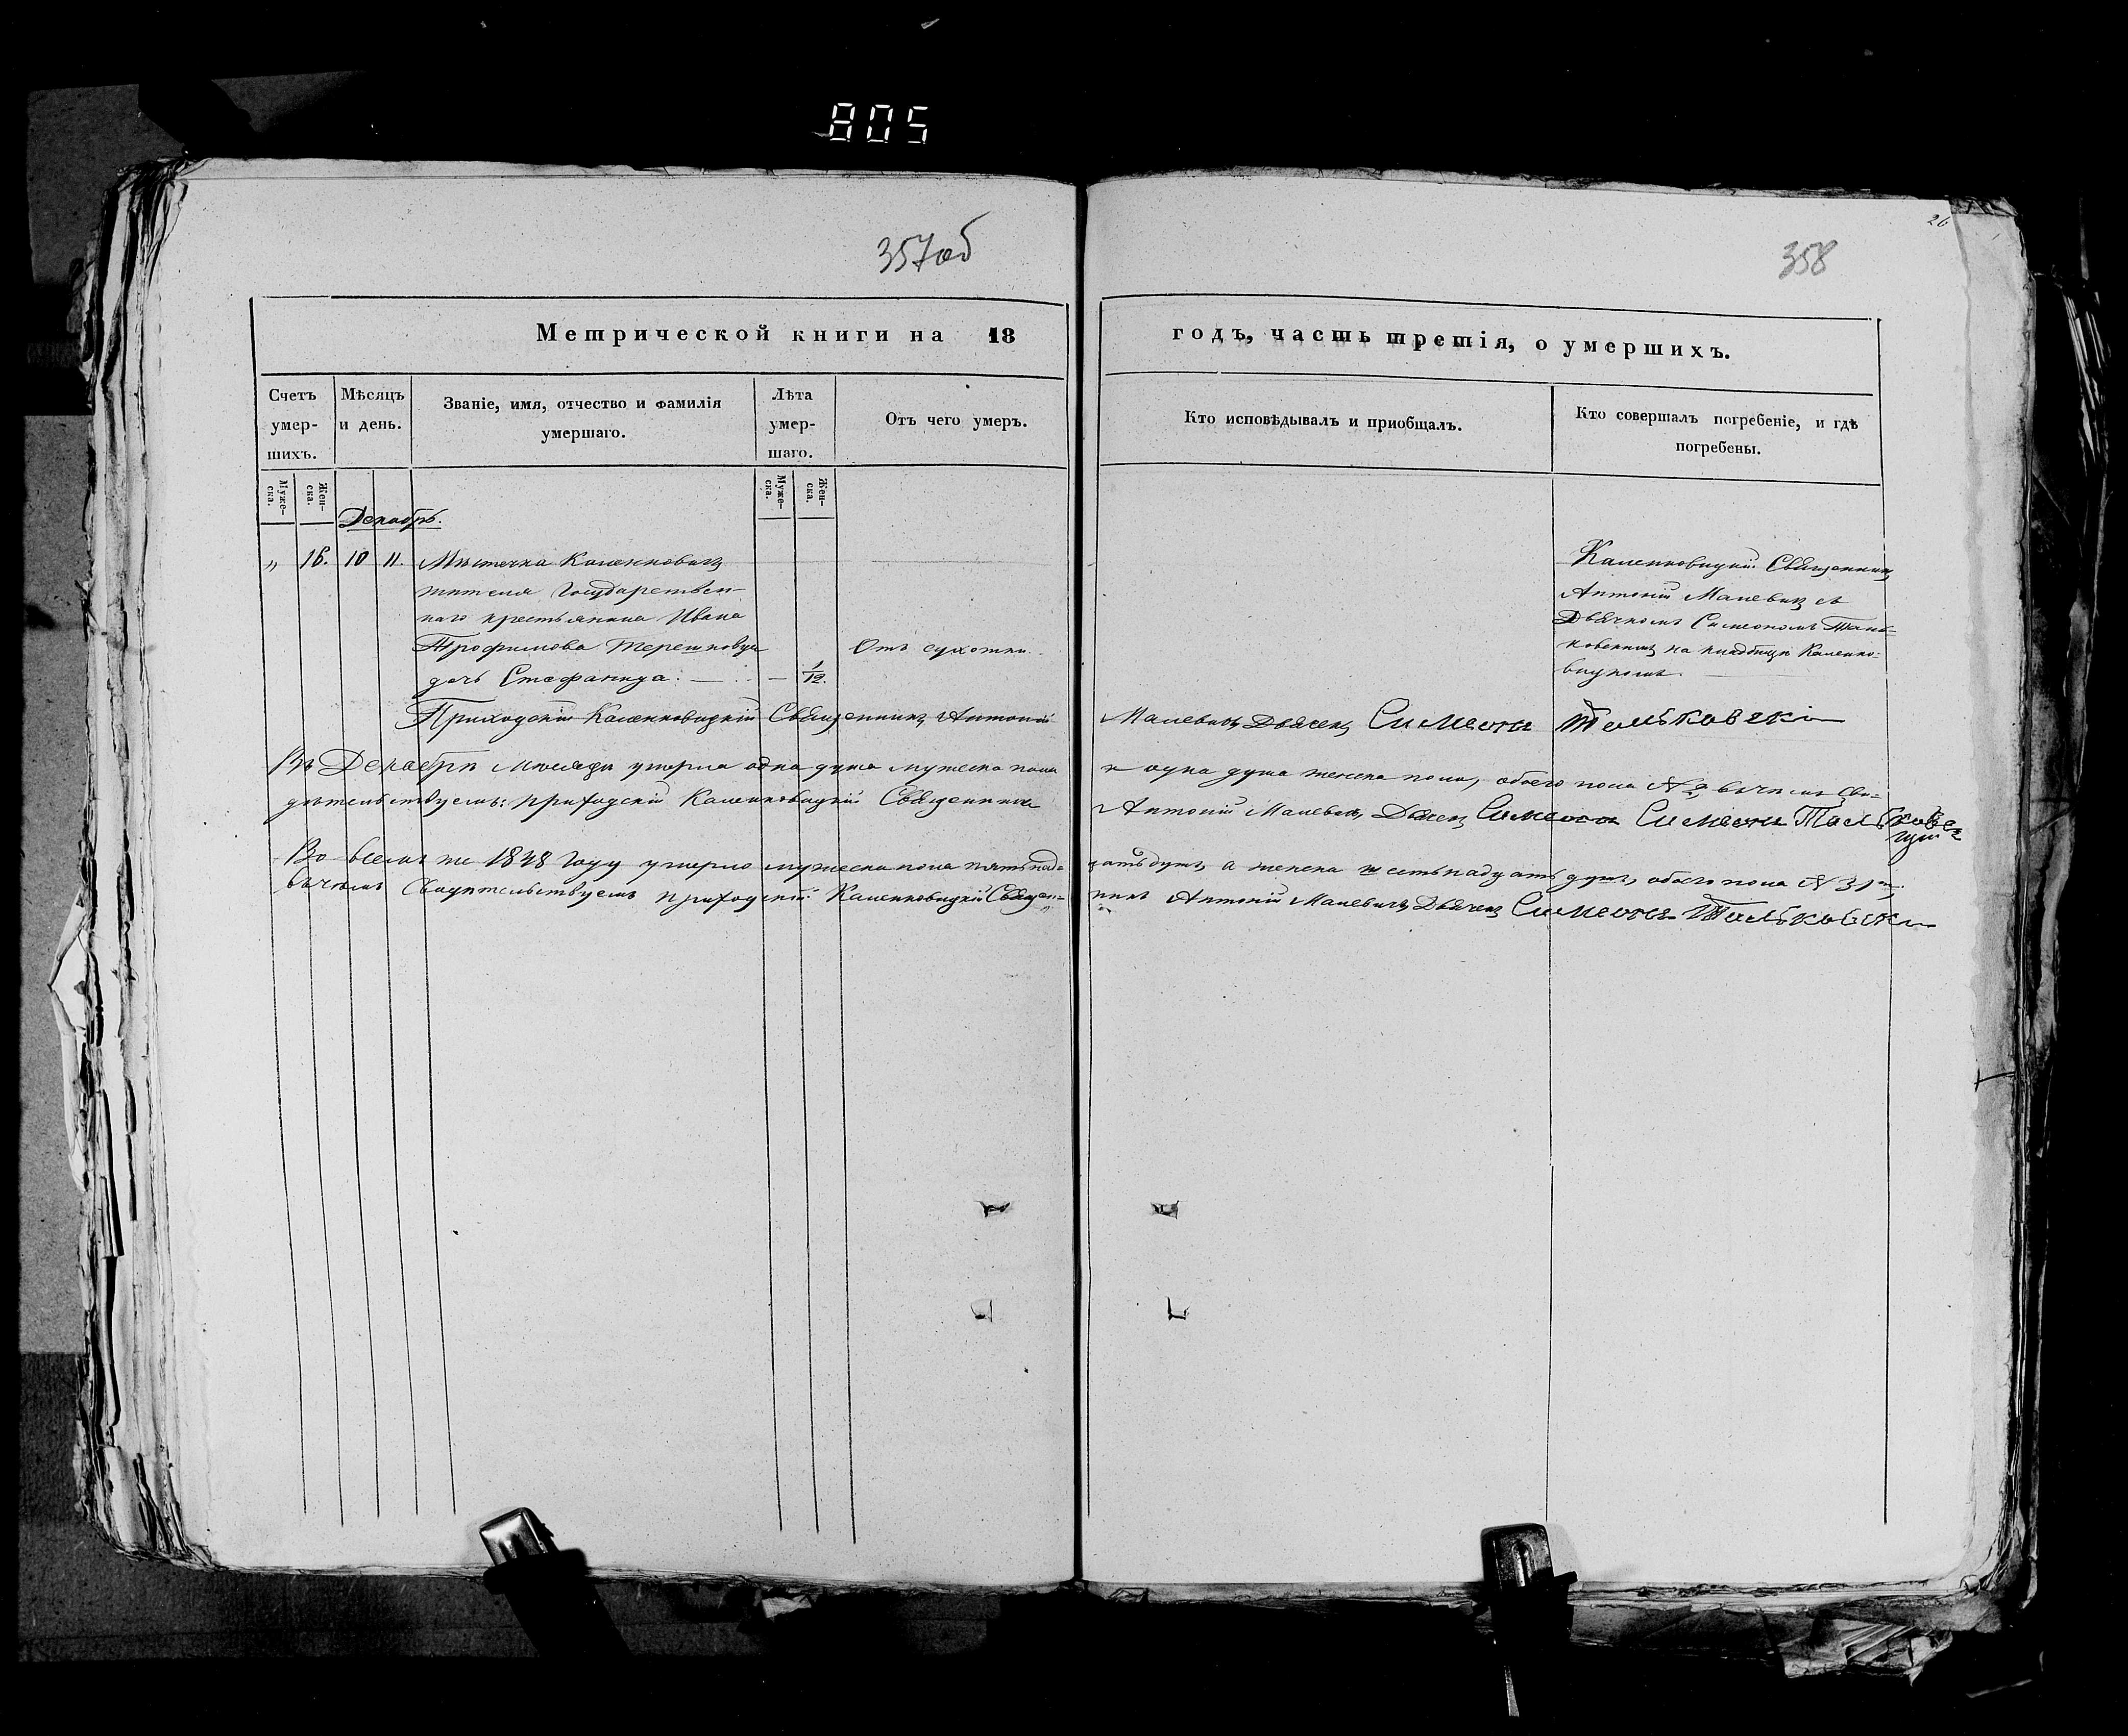 805
26
357об
358
Метрической книги на 18
годъ, часть третія, о умершихъ.
Счетъ умер-шихъ.
Мѣсяцъ и день.
Званіе, имя, отчество и фамилія умершаго.
Лѣта умер-шаго.
Отъ чего умеръ.
Кто исповѣдывалъ и приобщалъ.
Кто совершалъ погребеніе, и гдѣ погребены.
Муже-ска.
Жен-ска.
Муже-ска.
Жен-ска.
Декабрь.
„ 16. 10 11. Мѣстечка Каленковичъ
жителя Государствен-
наго крестьянина Ивана
Трофимова Терешковца
дочь Стефанида. — 1/12.
Отъ сухотки.
Каленковицкій Священникъ
Антоній Малевичъ съ
Дьячкомъ Симеономъ Таль-
ковскимъ на кладбищѣ Каленко-
вицкомъ.
Приходскій Каленковицкій Священникъ Антоній
Малевичъ, Дьячекъ Симеонъ Тальковскі
Въ Декабрѣ мѣсяцѣ умерла одна душа мужеска пола
и одна душа женска пола, обоего пола № 2 въ чемъ сви-
дѣтельствуемъ: приходскій Каленковицкій Священникъ
Антоній Малевичъ, Дьячекъ Симеонъ Симеонъ Тальковс
Во всемъ же 1848 году умерло мужеска пола пятьнад-
цать душъ, а женска шестьнадцать душъ, обоего пола № 31
въ чемъ Свидѣтельствуемъ приходскій Каленковицкій Священ-
никъ Антоній Малевичъ, Дьячекъ Симеонъ Тальковскі